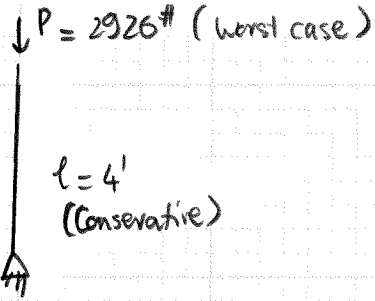 P = 2926# (worst case)
l = 4'
(Conservative)